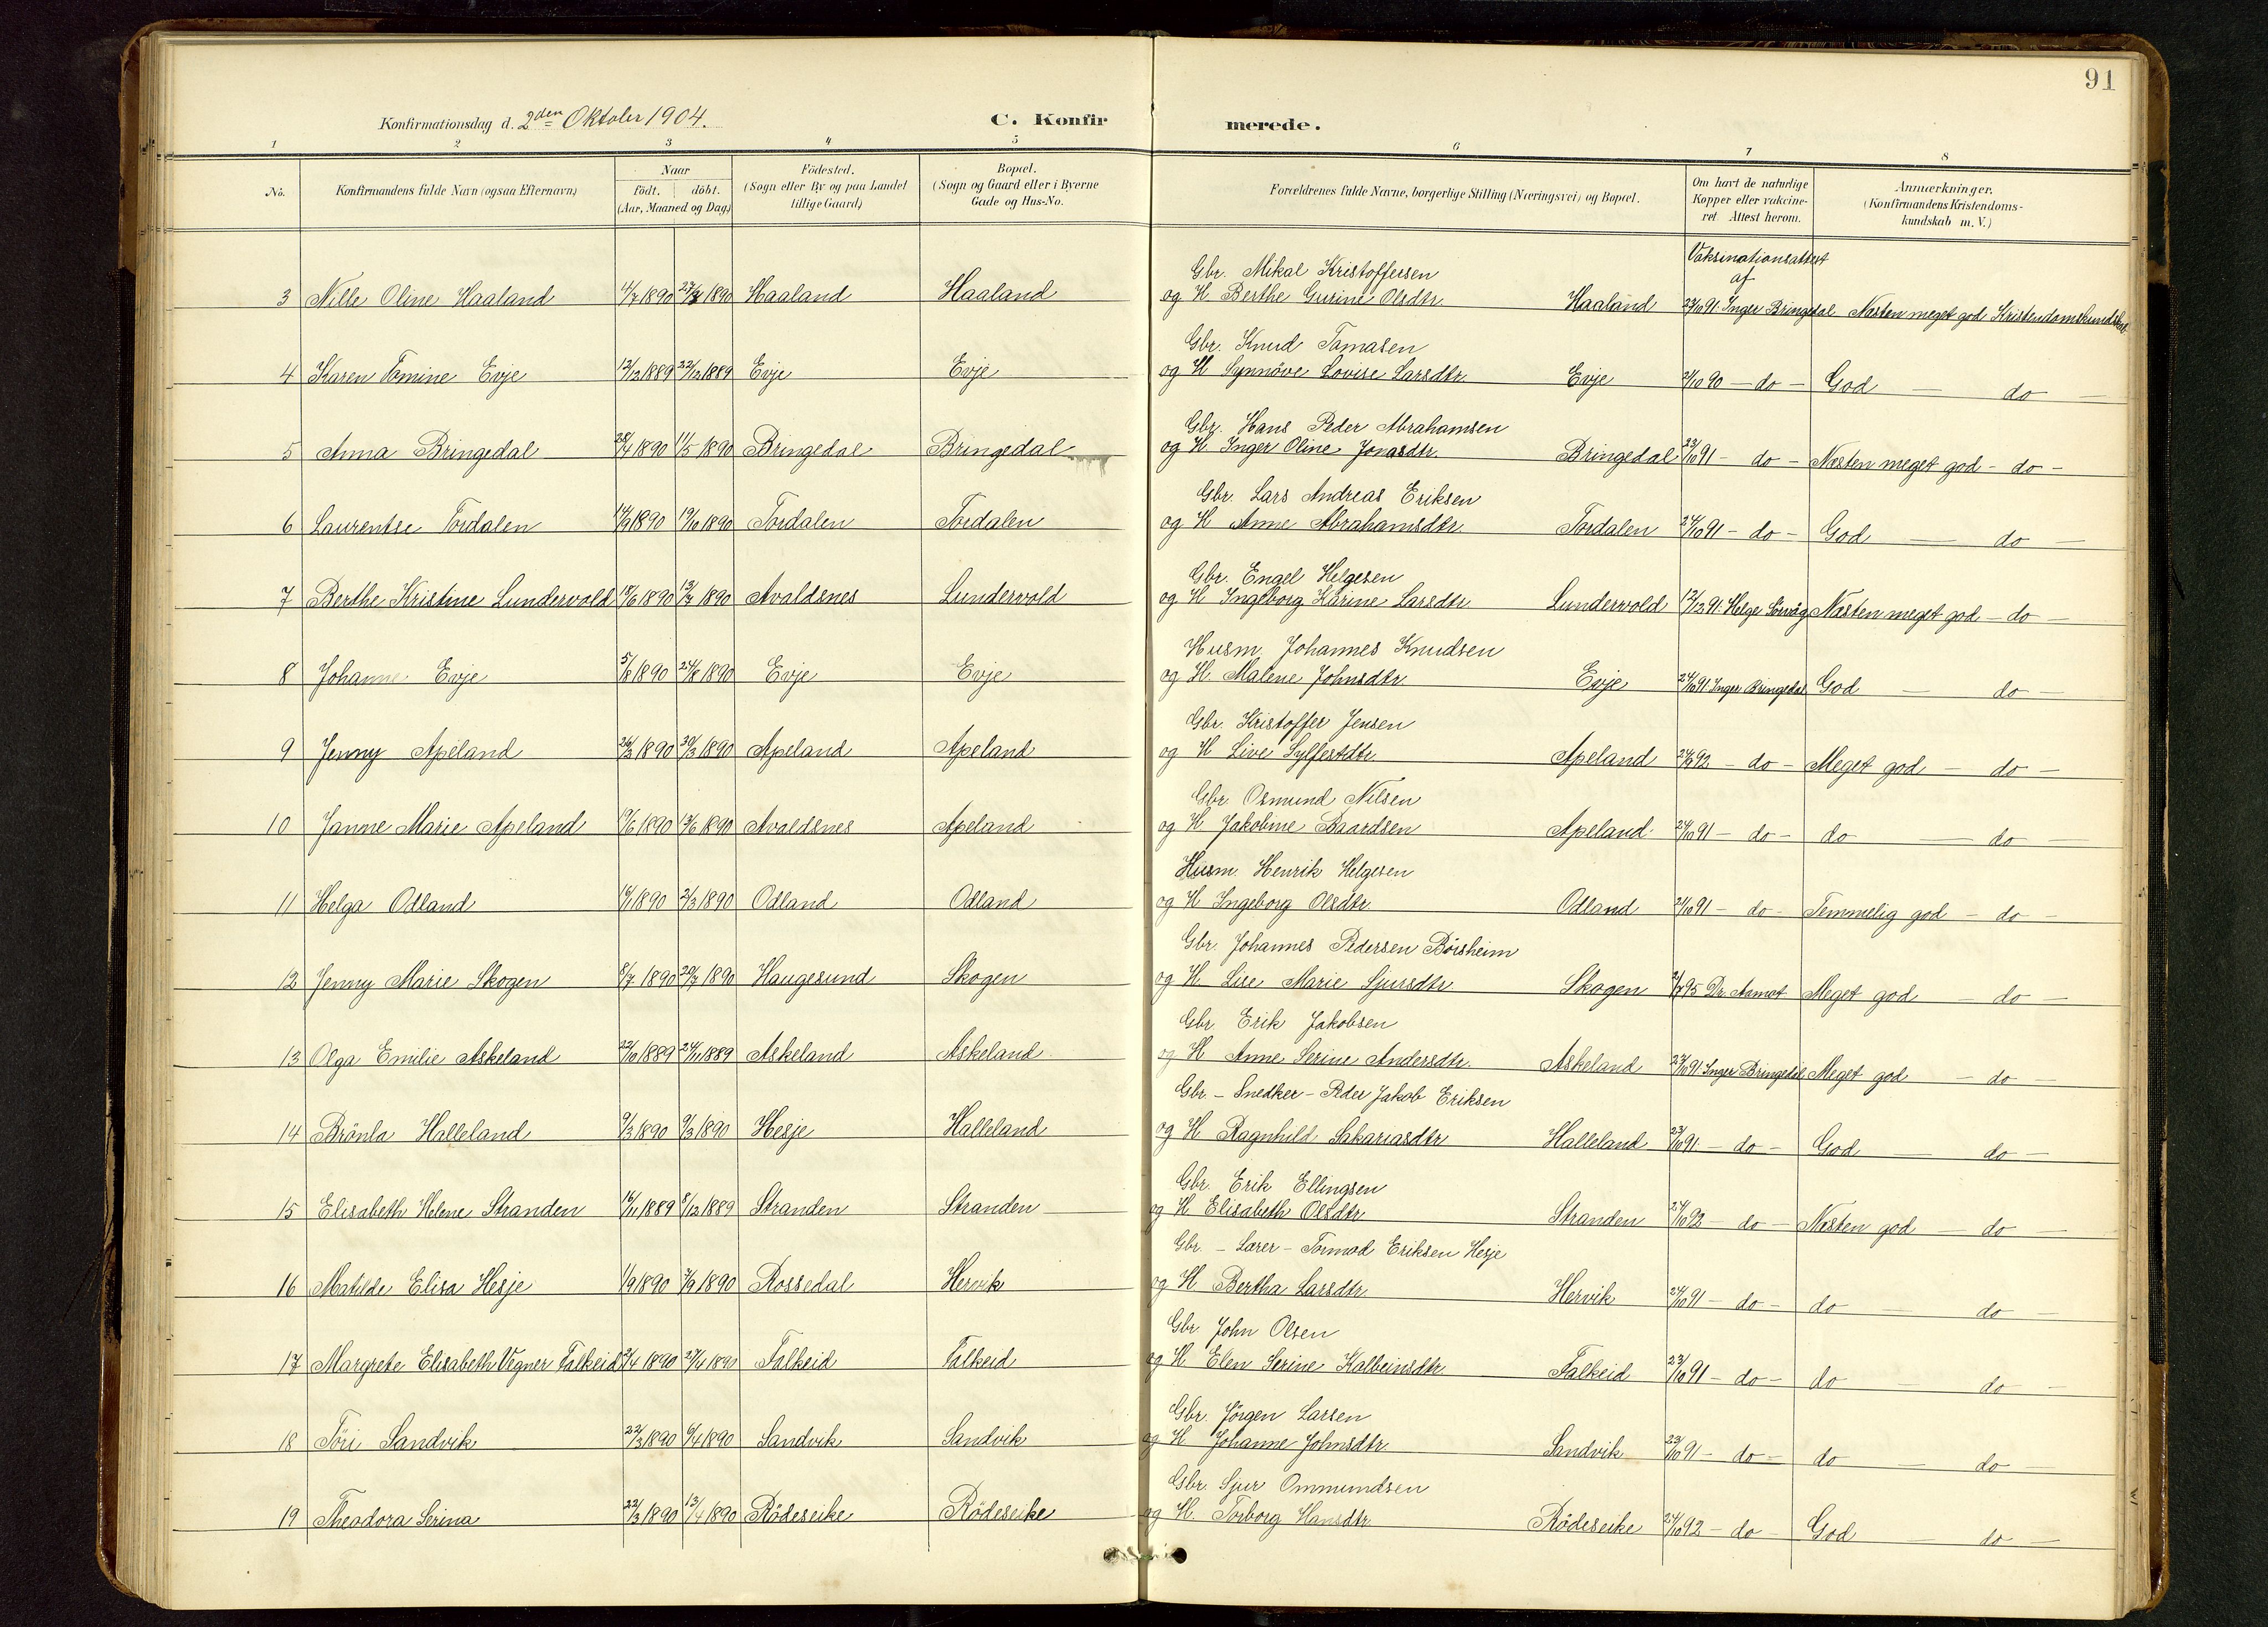 91
Konfirmationsdag d. 2den Oktober 1904.
C. Konfirmerede.
1 2 3 4 5 6 7 8
No.
Konfirmandens fulde Navn (ogsaa Efternavn)
Naar
födt. döbt.
(Aar, Maaned og Dag.)
Födested.
(Sogn eller By og paa Landet
tillige Gaard)
Bopæl.
(Sogn og Gaard eller i Byerne
Gade og Hus-No.
Forældrenes fulde Navne, borgerlige Stilling (Næringsvei) og Bopæl.
Om havt de naturlige
Kopper eller vakcine-
ret. Attest herom.
Anmærkninger.
(Konfirmandens Kristendoms-
kundskab m. V.)
Vaksinationsattest
af
Gbr. Mikal Kristoffersen
3 Nille Oline Haaland 1890 1890 Haaland Haaland og H. Berthe Gurine Olsdtr. Haaland 23/10 91. Inger Bringedal Næsten meget god Kristendomskundskab
Gbr. Knud Tomasen
4 Karen Tomine Evje 12/12 1889 22/12 1889 Evje Evje og H. Synnöve Lovise Larsdtr. Evje 90 - do - God - do -
Gbr. Hans Peder Abrahamsen
5 Anna Bringedal 28/4 1890 11/5 1890 Bringedal Bringedal og H. Inger Oline Jonasdtr. Bringedal 23/10 91 - do - Næsten meget god - do -
Gbr. Lars Andreas Eriksen
6 Laurentse Tordalen 14/9 1890 19/10 1890 Tordalen Tordalen og H. Anne Abrahamsdtr. Tordalen 24/10 91 - do - God - do -
Gbr. Engel Helgesen
7 Berthe Kristine Lundervold 1890 13/7 1890 Avaldsnes Lundervold og H. Ingeborg Karine Larsdtr. Lundervold 12/12 91. Helge Næsten meget god - do -
Husm. Johannes Knudsen
8 Johanne Evje 5/8 1890 24/8 1890 Evje Evje og H. Malene Johnsdtr. Evje 24/10 91. Inger Bringedal God - do -
Gbr. Kristoffer Jensen
9 Jenny Apeland 1890 30/3 1890 Apeland Apeland og H. Live Sylfestdtr. Apeland 92 - do - Meget god - do -
Gbr. Osmund Nilsen
10 Janne Marie Apeland 1890 1890 Avaldsnes Apeland og H. Jakobine Baardsen Apeland 24/10 91 - do - do - do -
Husm. Henrik Helgesen
11 Helga Odland 1890 2/3 1890 Odland Odland og H. Ingeborg Olsdtr. Odland 91 - do - Temmelig god - do -
Gbr. Johannes Pedersen Börsheim
12 Jenny Marie Skogen 8/7 1890 20/7 1890 Haugesund Skogen og H. Lise Marie Sjursdtr. Skogen 95 Dr. Aamot Meget god - do -
Gbr. Erik Jakobsen
13 Olga Emilie Askeland 22/10 1889 24/11 1889 Askeland Askeland og H. Anne Serine Andersdtr. Askeland 23/10 91. Inger Bringedal Meget god - do -
Gbr. - Snedker - Peder Jakob Eriksen
14 Brönla Halleland 1890 9/3 1890 Hesje Halleland og H. Ragnhild Sakariasdtr. Halleland 23/10 91. - do - God - do -
Gbr. Erik Ellingsen
15 Elisabeth Helene Stranden 16/11 1889 8/12 1889 Stranden Stranden og H. Elisabeth Olsdtr. Stranden 24/10 92 - do - Næsten god - do -
Gbr. - Lærer - Tormod Eriksen Hesje
16 Matilde Elisa Hesje 1/9 1890 7/9 1890 Rossedal Hervik og H. Bertha Larsdtr. Hervik 24/10 91 - do - do - do -
Gbr. John Olsen
17 Margrete Elisabeth Vegner Falkeid 2/4 1890 27/4 1890 Falkeid Falkeid og H. Elen Serine Kolbeinsdtr. Falkeid 23/10 91 - do - do - do -
Gbr. Jörgen Larsen
18 Töri Sandvik 22/3 1890 6/4 1890 Sandvik Sandvik og H. Johanne Johnsdtr. Sandvik 23/10 91 - do - do - do -
Gbr. Sjur Ommundsen
19 Theodora Serina 22/3 1890 13/4 1890 Rödeseike Rödeseike og H. Torborg Hansdtr. Rödeseike 24/10 92 - do - God - do -